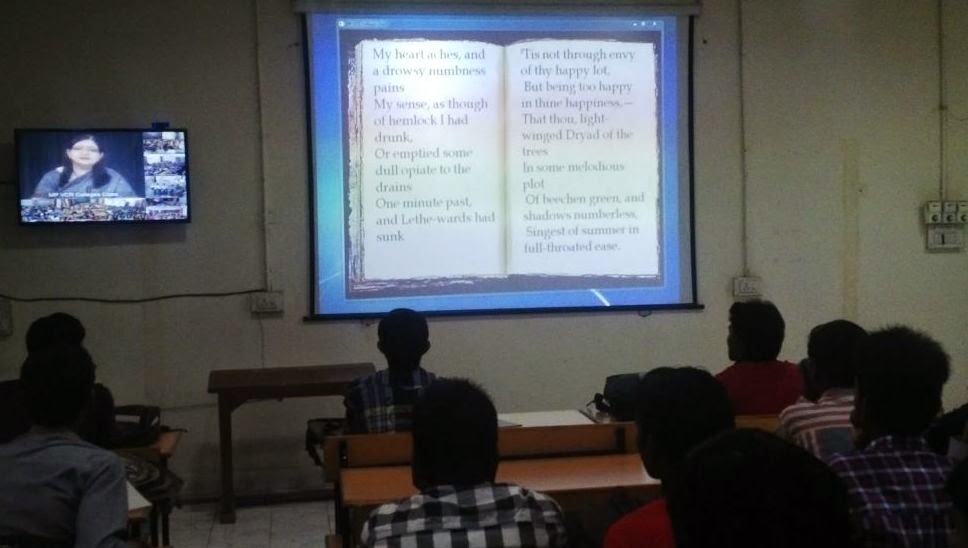 My heart aches, and
a drowsy numbness
pains
My sense, as though
of hemlock I had
drunk,
Or emptied some
dull opiate to the
drains
One minute past,
and Lethe-wards had
sunk
'Tis not through envy
of thy happy lot,
But being too happy
in thine happiness,—
That thou, light-
winged Dryad of the
trees
In some melodious
plot
Of beechen green, and
shadows numberless,
Singest of summer in
full-throated ease.